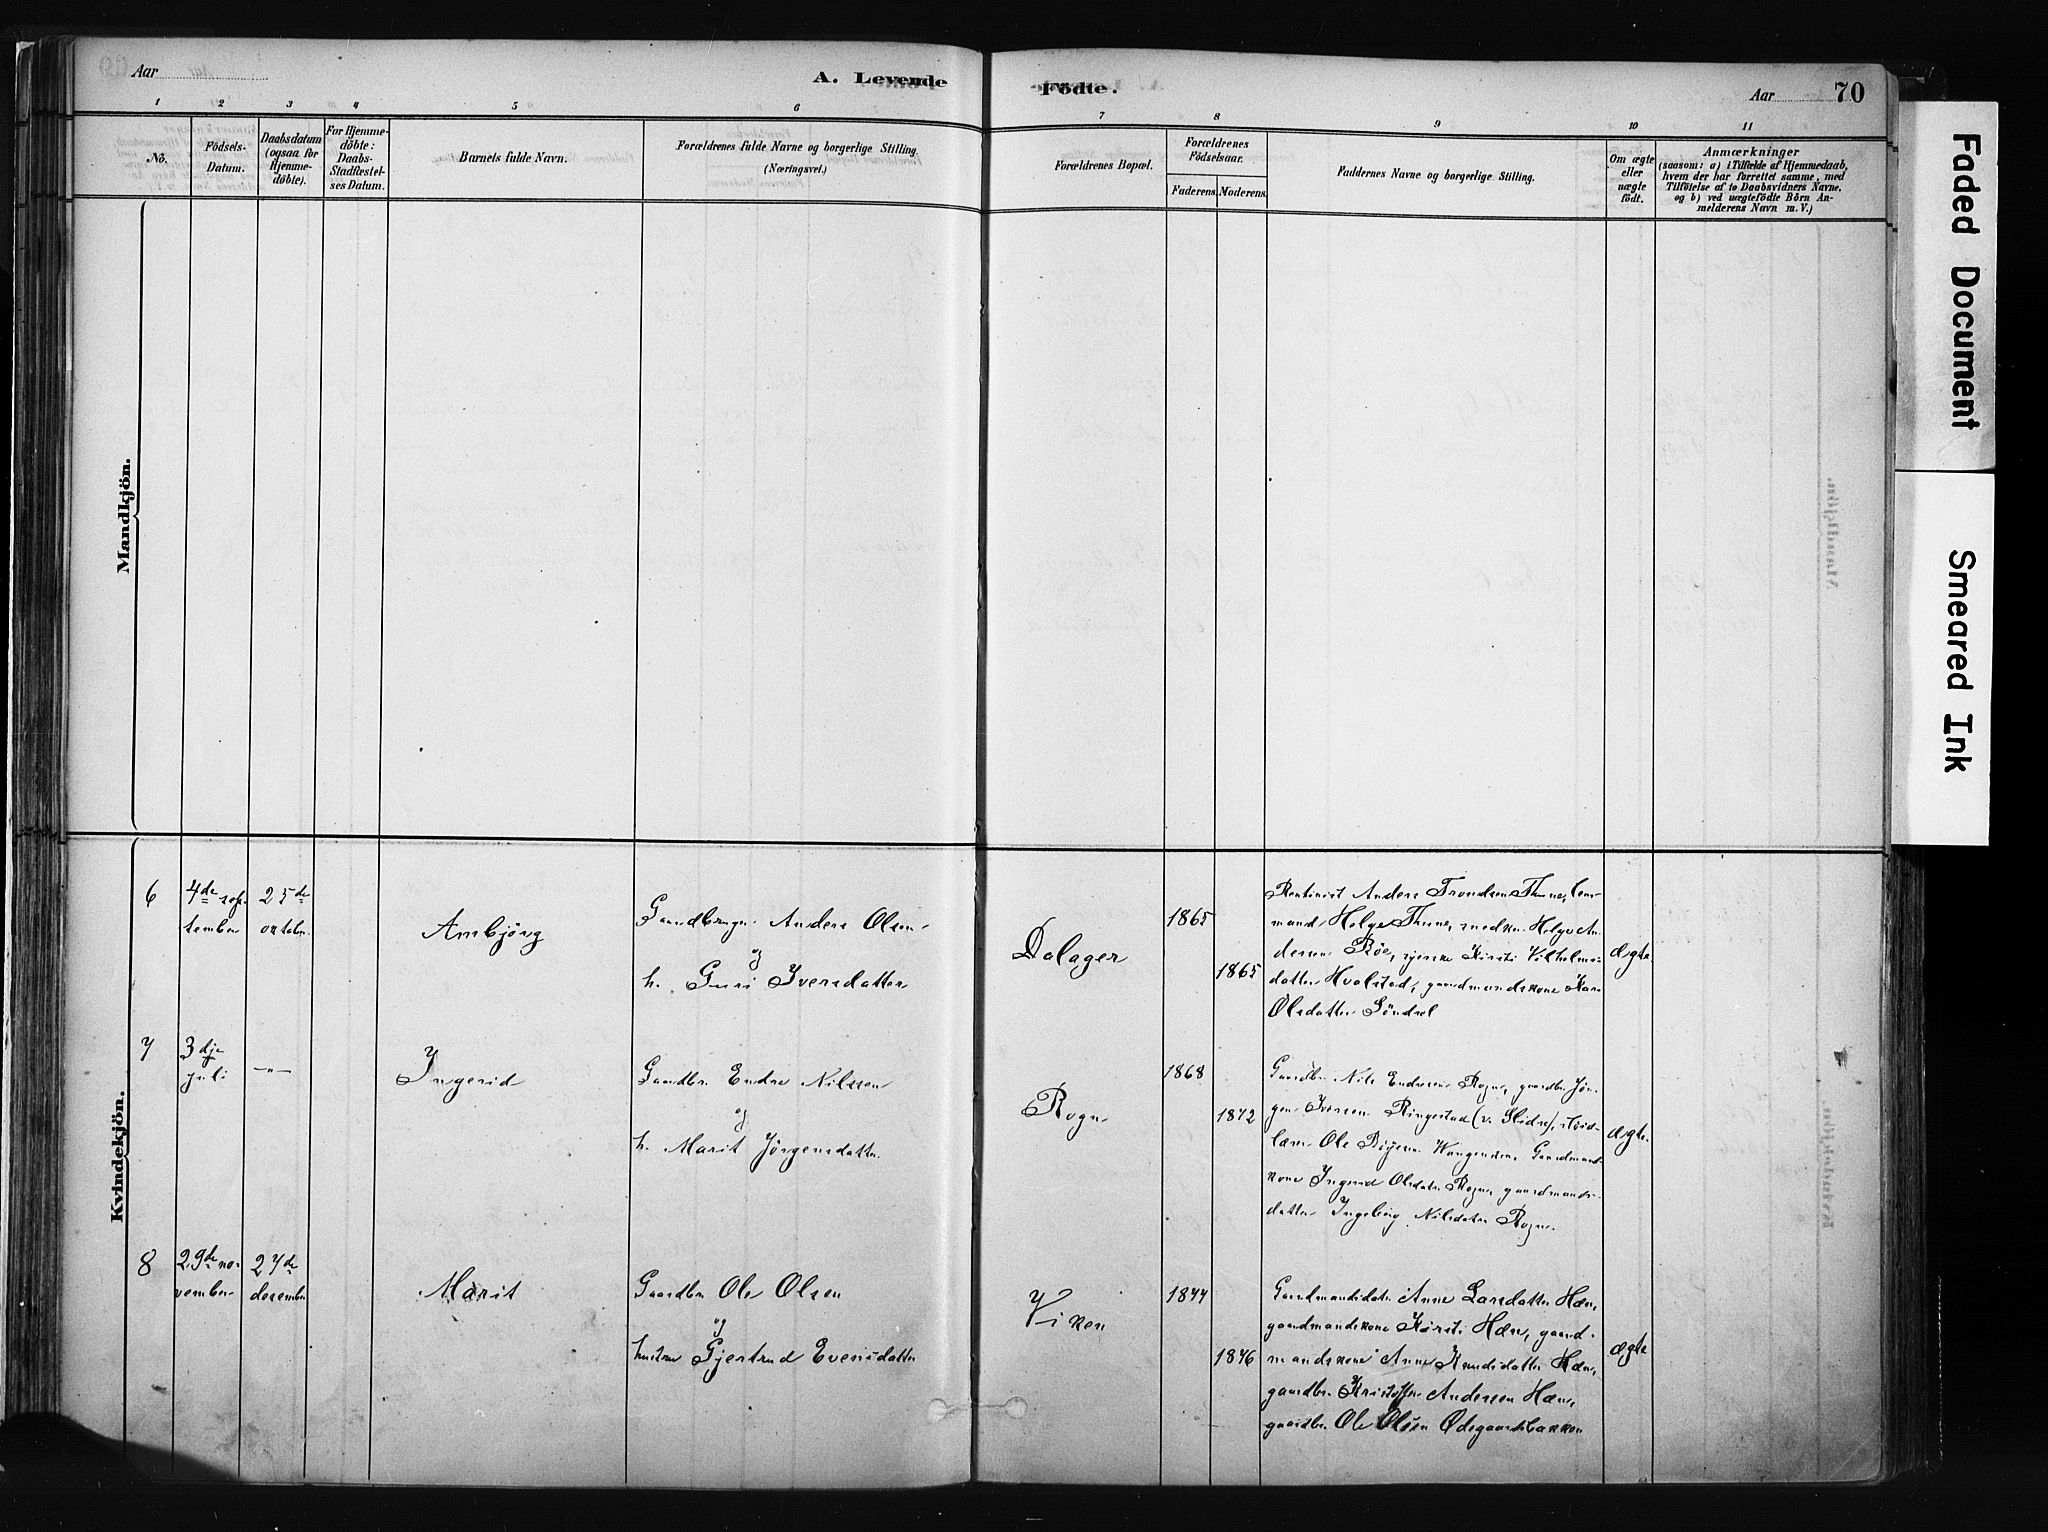 Aar
A. Levende
Födte.
Aar
70
1 2 3 4 5 6 7 8 9 10 11
No.
Födsels-
Datum.
Daabsdatum
(ogsaa for
Hjemme-
döbte).
For Hjemme-
döbte:
Daabs-
Stadfæstel-
ses Datum.
Barnets fulde Navn.
Forældrenes fulde Navne og borgerlige Stilling.
(Næringsvei.)
Forældrenes Bopæl.
Forældrenes
Födselsaar.
Faderens. Moderens.
Faddernes Navne og borgerlige Stilling.
Om ægte
eller
uægte
födt.
Anmærkninger
(saasom: a) i Tilfælde af Hjemmedaab,
hvem der har forrettet samme, med
Tilföielse af to Daabsvidners Navne,
og b) ved uægtefödte Börn An-
melderens Navn m. V.)
Mandkjön.
Kvindekjön.
6
4de sep-
tember
25de
oktober
Ambjörg
Gaardbruger Anders Olsen
og
h. Guri Iversdatter
Dalager
1865
1865
Anders Trondsen Thune, lens-
mand Helge Thune, Helge An-
dersen Röe, Kirsti Vilhelms-
datter Hvalstad, gaardmandskone Kari
Olsdatter Söndrol
ægte
7
3dje
juli
-"-
Ingerid
Gaardbr. Endre Nilssen
og
h. Marit Jörgensdatter
Rogn
1868
1872
Gaardbr. Nils Endresen Rogn, gaardbr. Jör-
gen Iversen Ringestad (v. Slidre),
Ole Wangendin, Gaardmands-
kone Ingerid Olsdatter Rogn, gaardmands-
datter Ingeborg Nilsdatter Rogn.
ægte
8
29de no-
vember
27de
desember
Marit
Gaardbr. Ole Olsen
og
hustru Gjertrud Evensdatter
Viken
1844
1846
Anne Larsdatter Hæn,
gaardmandskone Kirsti Hæn, gaard-
mandskone Anne Knudsdatter Hæn,
gaardbr. Kristoffer Andersen Hæn,
gaardbr. Ole Olsen Ödegaardsbakken
ægte
Faded Document
Smeared Ink